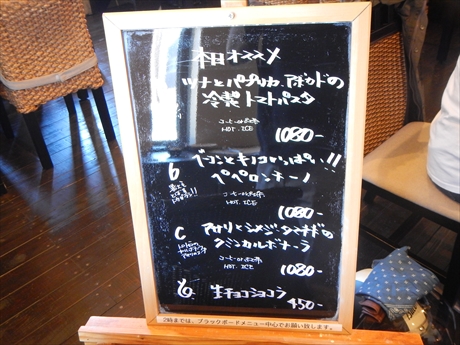 本日オススメ
ツナとパプリカ、アボカドの
冷製トマトパスタ
コーヒーor紅茶
HOT. ICE
1080-
b
ベーコンとキノコがいっぱい!!
ペペロンチーノ
コーヒーor紅茶
HOT. ICE
1080-
C
アサリとシメジ・タマネギの
クリームカルボナーラ
コーヒーor紅茶
HOT. ICE
1080-
生チョコショコラ
450-
2時までは、ブラックボードメニュー中心でお願い致します。